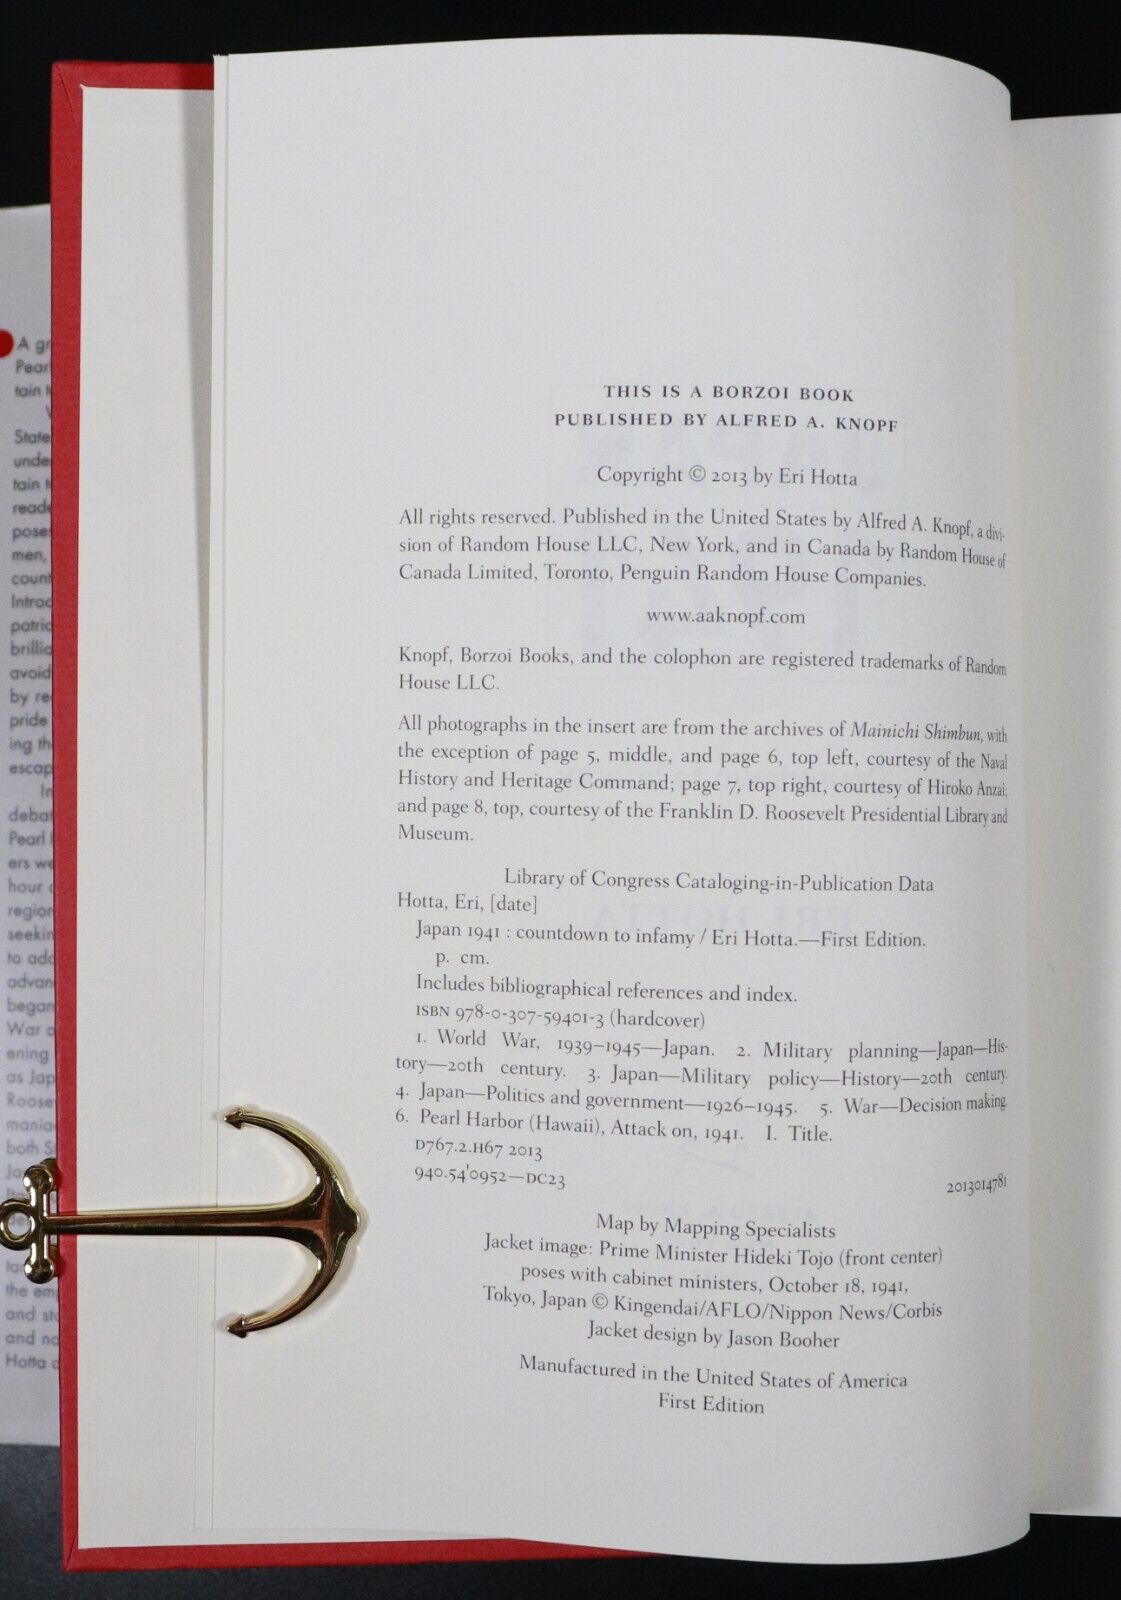 THIS IS A BORZOI BOOK
PUBLISHED BY ALFRED A. KNOPF
Copyright © 2013 by Eri Hotta
All rights reserved. Published in the United States by Alfred A. Knopf, a divi-
sion of Random House LLC, New York, and in Canada by Random House of
Canada Limited, Toronto, Penguin Random House Companies.
www.aaknopf.com
Knopf, Borzoi Books, and the colophon are registered trademarks of Random
House LLC.
All photographs in the insert are from the archives of Mainichi Shimbun, with
the exception of page 5, middle, and page 6, top left, courtesy of the Naval
History and Heritage Command; page 7, top right, courtesy of Hiroko Anzai;
and page 8, top, courtesy of the Franklin D. Roosevelt Presidential Library and
Museum.
Library of Congress Cataloging-in-Publication Data
Hotta, Eri, [date]
Japan 1941 : countdown to infamy / Eri Hotta.—First Edition.
p. cm.
Includes bibliographical references and index.
ISBN 978-0-307-59401-3 (hardcover)
1. World War, 1939–1945—Japan. 2. Military planning—Japan—His-
tory—20th century. 3. Japan—Military policy—History—20th century.
4. Japan—Politics and government—1926–1945. 5. War—Decision making.
6. Pearl Harbor (Hawaii), Attack on, 1941. I. Title.
D767.2.H67 2013
940.54'0952—DC23 2013014781
Map by Mapping Specialists
Jacket image: Prime Minister Hideki Tojo (front center)
poses with cabinet ministers, October 18, 1941,
Tokyo, Japan © Kingendai/AFLO/Nippon News/Corbis
Jacket design by Jason Booher
Manufactured in the United States of America
First Edition
A gr
Pear
tain
State
unde
tain
reade
pose
men,
count
Introd
patrio
brillia
avoid
by re
pride
ing th
escap
In
debat
Pearl
ers we
hour
region
seekin
to add
advan
began
War
ening
as Jap
Roose
mania
both
the em
and
and no
Hotta